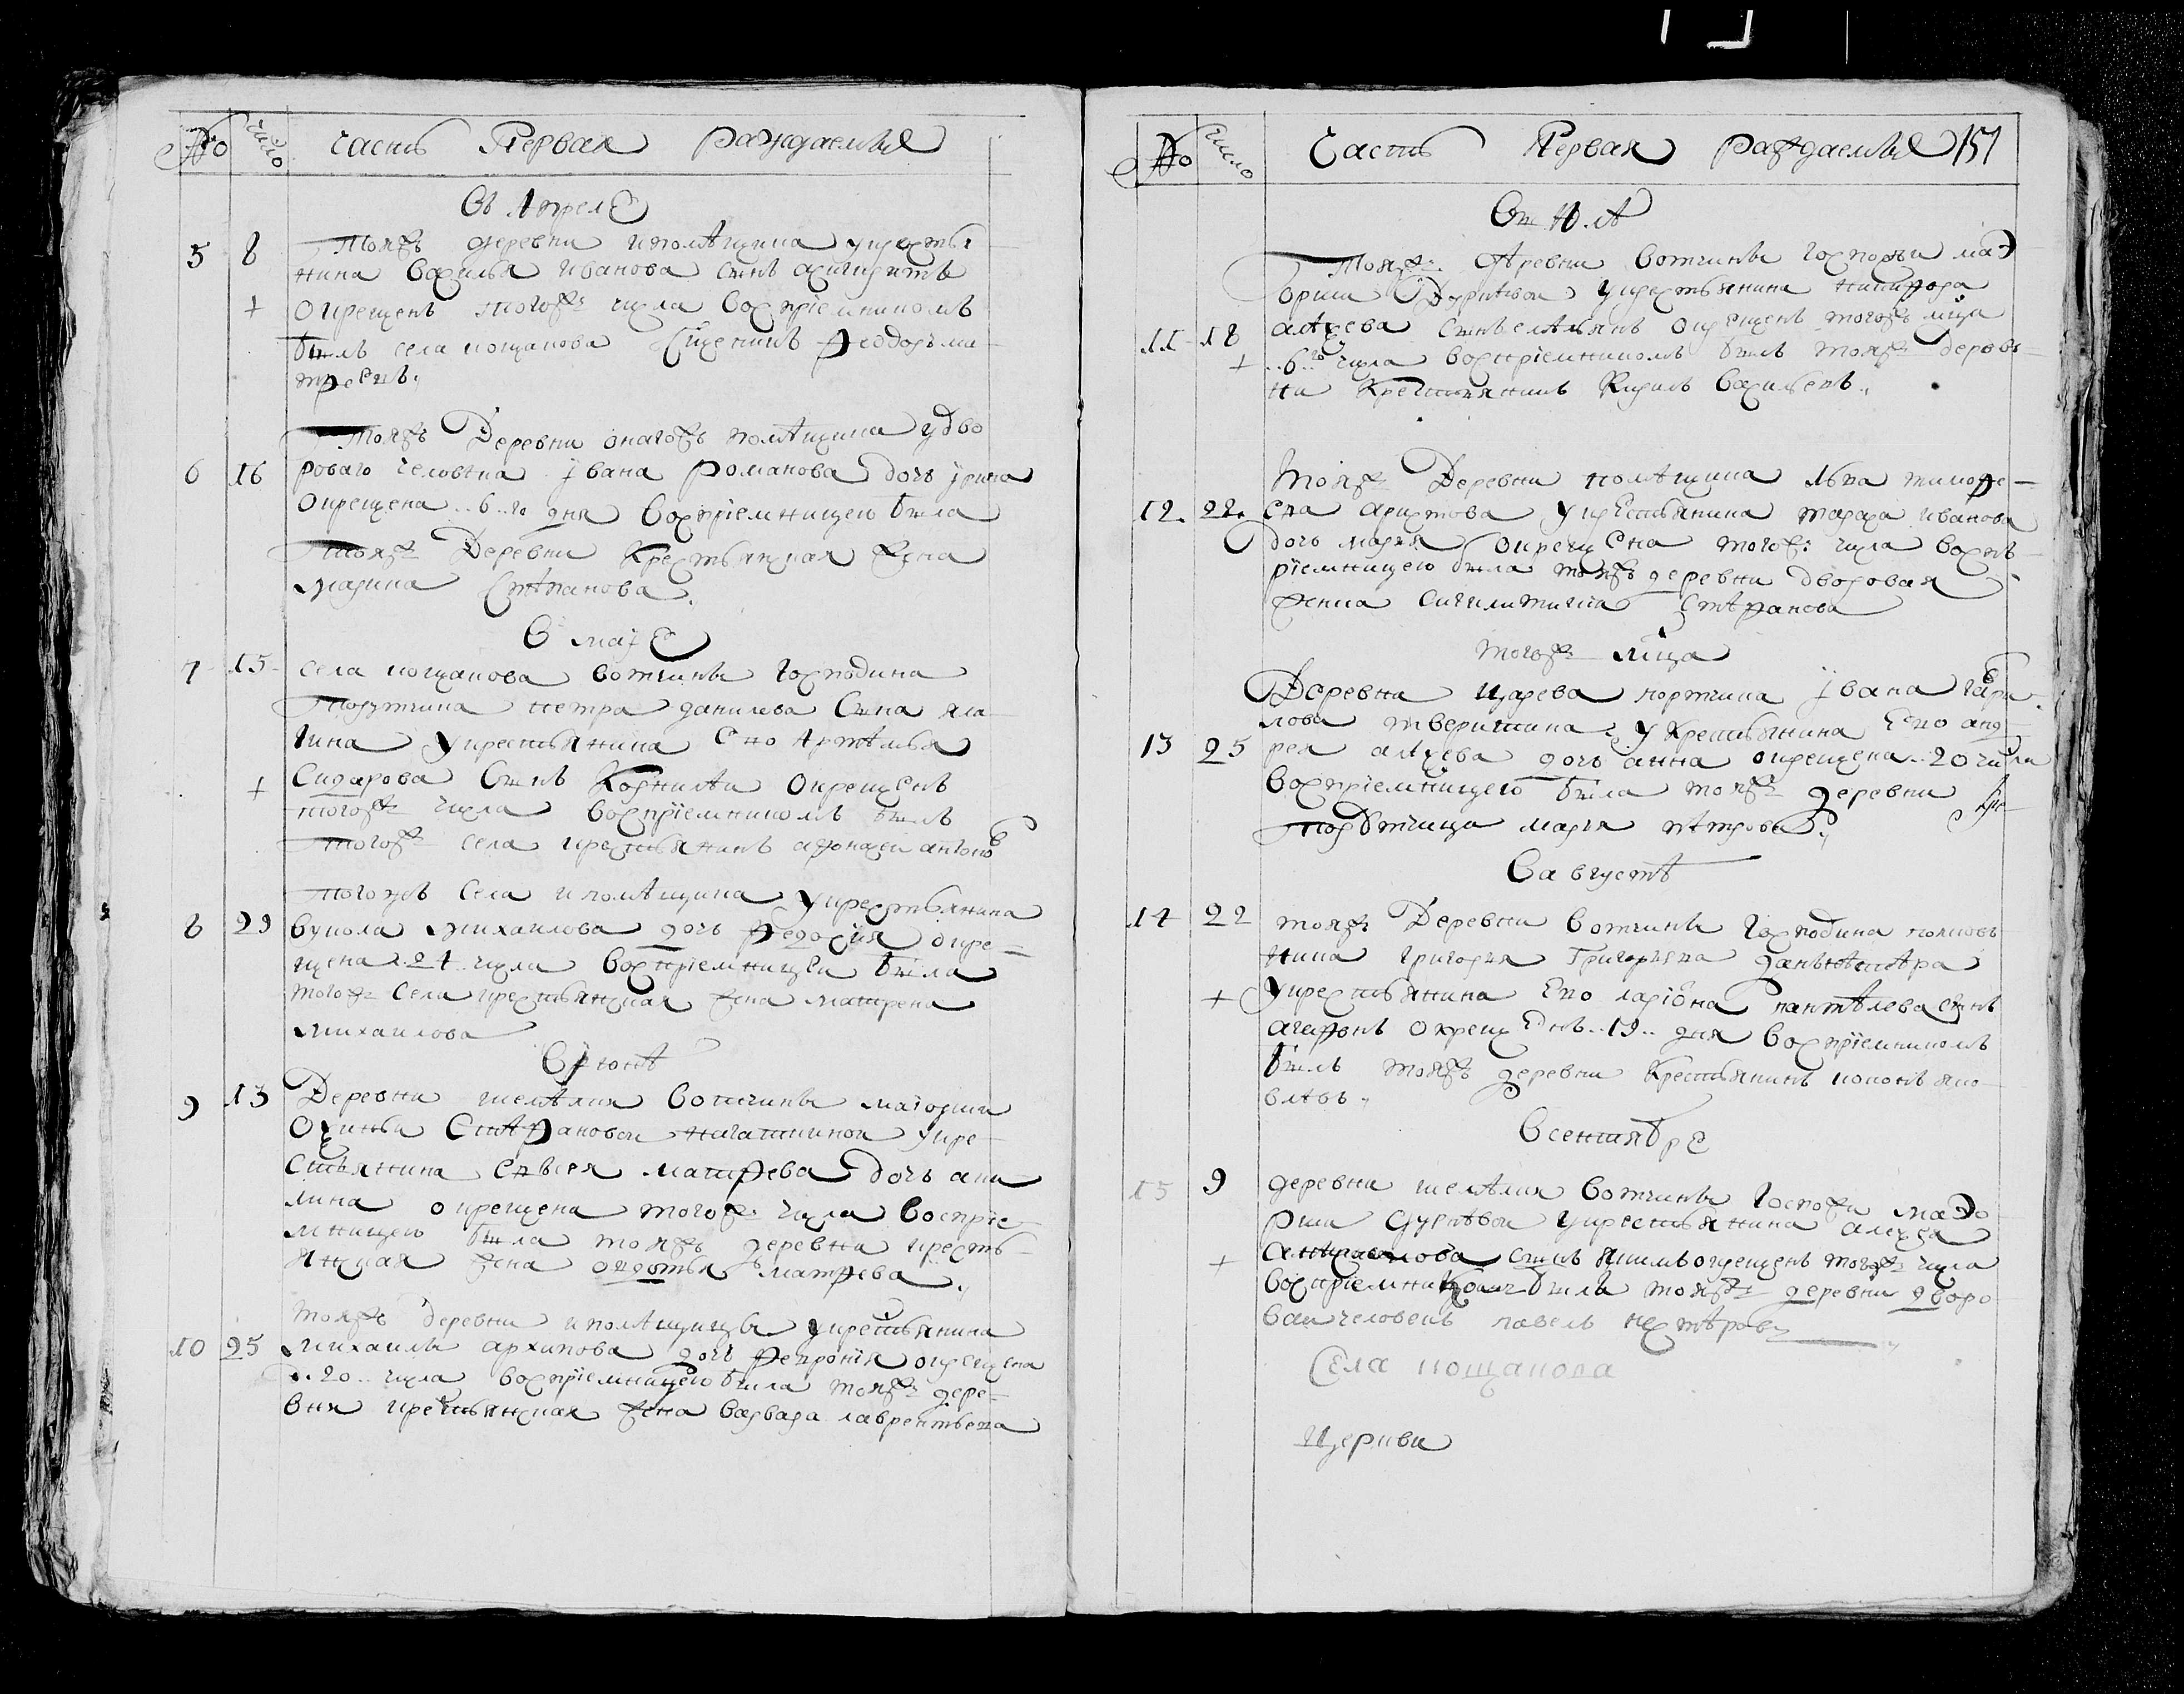 № число часть Первая раждаемыя
Въ Апреле
5 8 Тояжъ деревни ипомѣщика укрестья
нина Василья Иванова сынъ
окрещенъ тогожъ числа воспрiемникомъ
былъ села кощанова Сщенникъ Феодоръ ми
трев
Тояжъ Деревни онагожъ помѣщика удво
6 16 роваго человека Iвана Романова дочь Iрина
окрещена ..6..го дня воспрiемницею была
Тояжъ Деревни Крестьянская жена
марина Стѣпанова
В маiе
7 15 села кощанова вотчины господина
порутчика петра данилева сына яла
гина укрестьянина ево Артѣмья
Сидарова сынъ Корнилѣи окрещенъ
тогожъ числа воспрiемникомъ былъ
тогожъ села крестьянинъ афонасеи антонов
Тогожъ села ипомѣщика укрестьянина
8 29 вукола михаилова дочь Федосия окре
щена .24. числа воспрiемницеи была
тогожъ села крестьянская жена матрена
михаилова
В Iюнѣ
9 13 Деревни шелѣмия вотчины маiорши
Стѣфановои укре
стьянина матфева дочь аку
лина окрещена тогожъ числа воспрiе
мницею была тояжъ деревни кресть
янская жена овдотья матфева
Тояжъ деревни ипомѣщицы укрестьянина
10 25 михаилы архипова дочь Февронiя окрещена
..20.. числа воспрiемницею была тояжъ дере
вни крестьянская жена варвара лаврентьева
№ число Часть Первая раждаемыя 151
Въ Июлѣ
Тояжъ деревни вотчины госпожи маэ
орши Дурнѣвои укрестьянина никифора
11 18 алѣксева сынъ емѣльянъ окрещенъ тогожъ мца
..6..го числа воспрiемникомъ былъ тояжъ дерев
ни Крестьянинъ Кирилъ васильевъ
Тояжъ Деревни помѣщика льва тимофе
12. 22. ева аристова укрестьянина тараса иванова
дочь марья окрещена тогожъ числа воспъ
рiемницею была тояжъ деревни дворовая
женка Стѣфанова
тогожъ мца
Деревни Царева портчика Iвана гаври
лова тверитина укрестьянина ево анд
13 25 рея алѣксева дочь анна окрещена ..20 числа
воспрiемницею была тояжъ деревни
марья пѣтрова
В августѣ
14 22 тояжъ Деревни вотчины господина полковъ
ника григорья Григорьева
укрестьянина ево ларiона пантѣлева сынъ
агафонъ окрещенъ ..19.. дня воспрiемникомъ
былъ тояжъ деревни Крестьянинъ кононъ яко
влѣвъ
В сентябре
15 9 деревни шелѣмия вотчины госпожи маэо
рши дурнѣвои укрестьянина алѣксея
сынъ якимъ окрещенъ тогожъ числа
воспрiемникомъ былъ тояжъ деревни дворо
ваи человекъ павелъ нестѣровъ
Села кощанова
Церкви